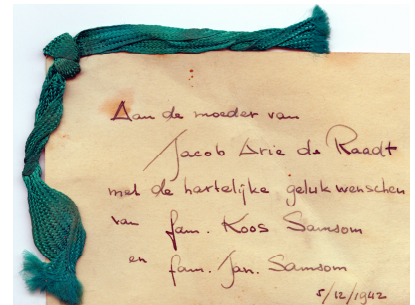 Aan de moeder van
Jacob Arie de Raadt
met de hartelijke gelukwenschen
van fam. Koos Samsom
en fam. Jan. Samsom
5/12/1942